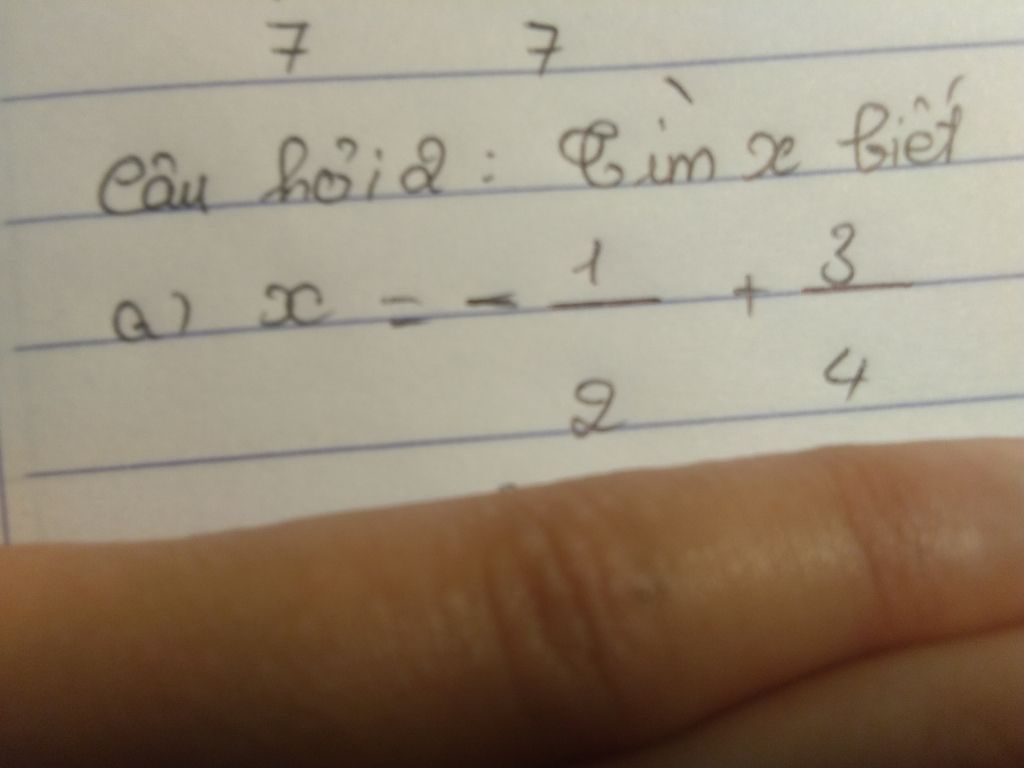 7 7
Câu hỏi 2: Tìm x biết
a) x = - 1/2 + 3/4